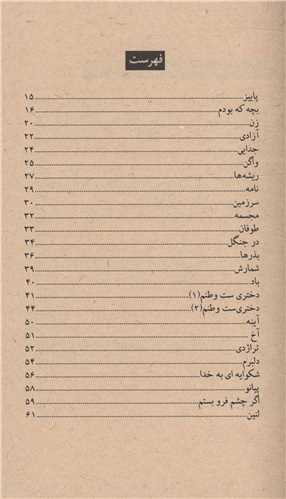 فهرست
پاییز ۱۵
بچه که بودم ۱۶
زن ۲۰
آزادی ۲۲
جدایی ۲۴
واگن ۲۵
ریشه‌ها ۲۷
نامه ۲۹
سرزمین ۳۰
مجسمه ۳۲
طوفان ۳۳
در جنگل ۳۴
بذرها ۳۶
شمارش ۳۹
باد ۴۰
دختری ست وطنم(۱) ۴۱
دختری‌ست وطنم(۲) ۴۴
آینه ۵۰
آخ ۵۱
تراژدی ۵۲
دلبرم ۵۴
شکواییه ای به خدا ۵۶
پیانو ۵۸
اگر چشم فرو بستم ۵۹
لنین ۶۱